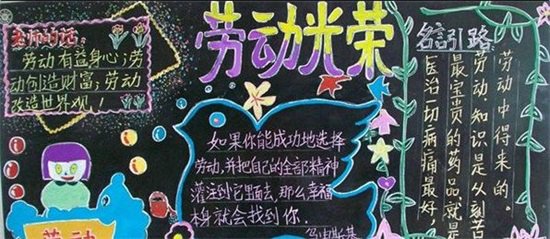 老师的话
劳动有益身心；劳
动创造财富；劳动
改造世界观！
劳动
劳动光荣
如果你能成功地选择
劳动，并把自己的全部精神
灌注到它里面去，那么幸福
本身就会找到你.
乌申斯基
名言引路
医治一切病痛最好
最宝贵的药品就是
劳动.知识是从刻苦
劳动中得来的。